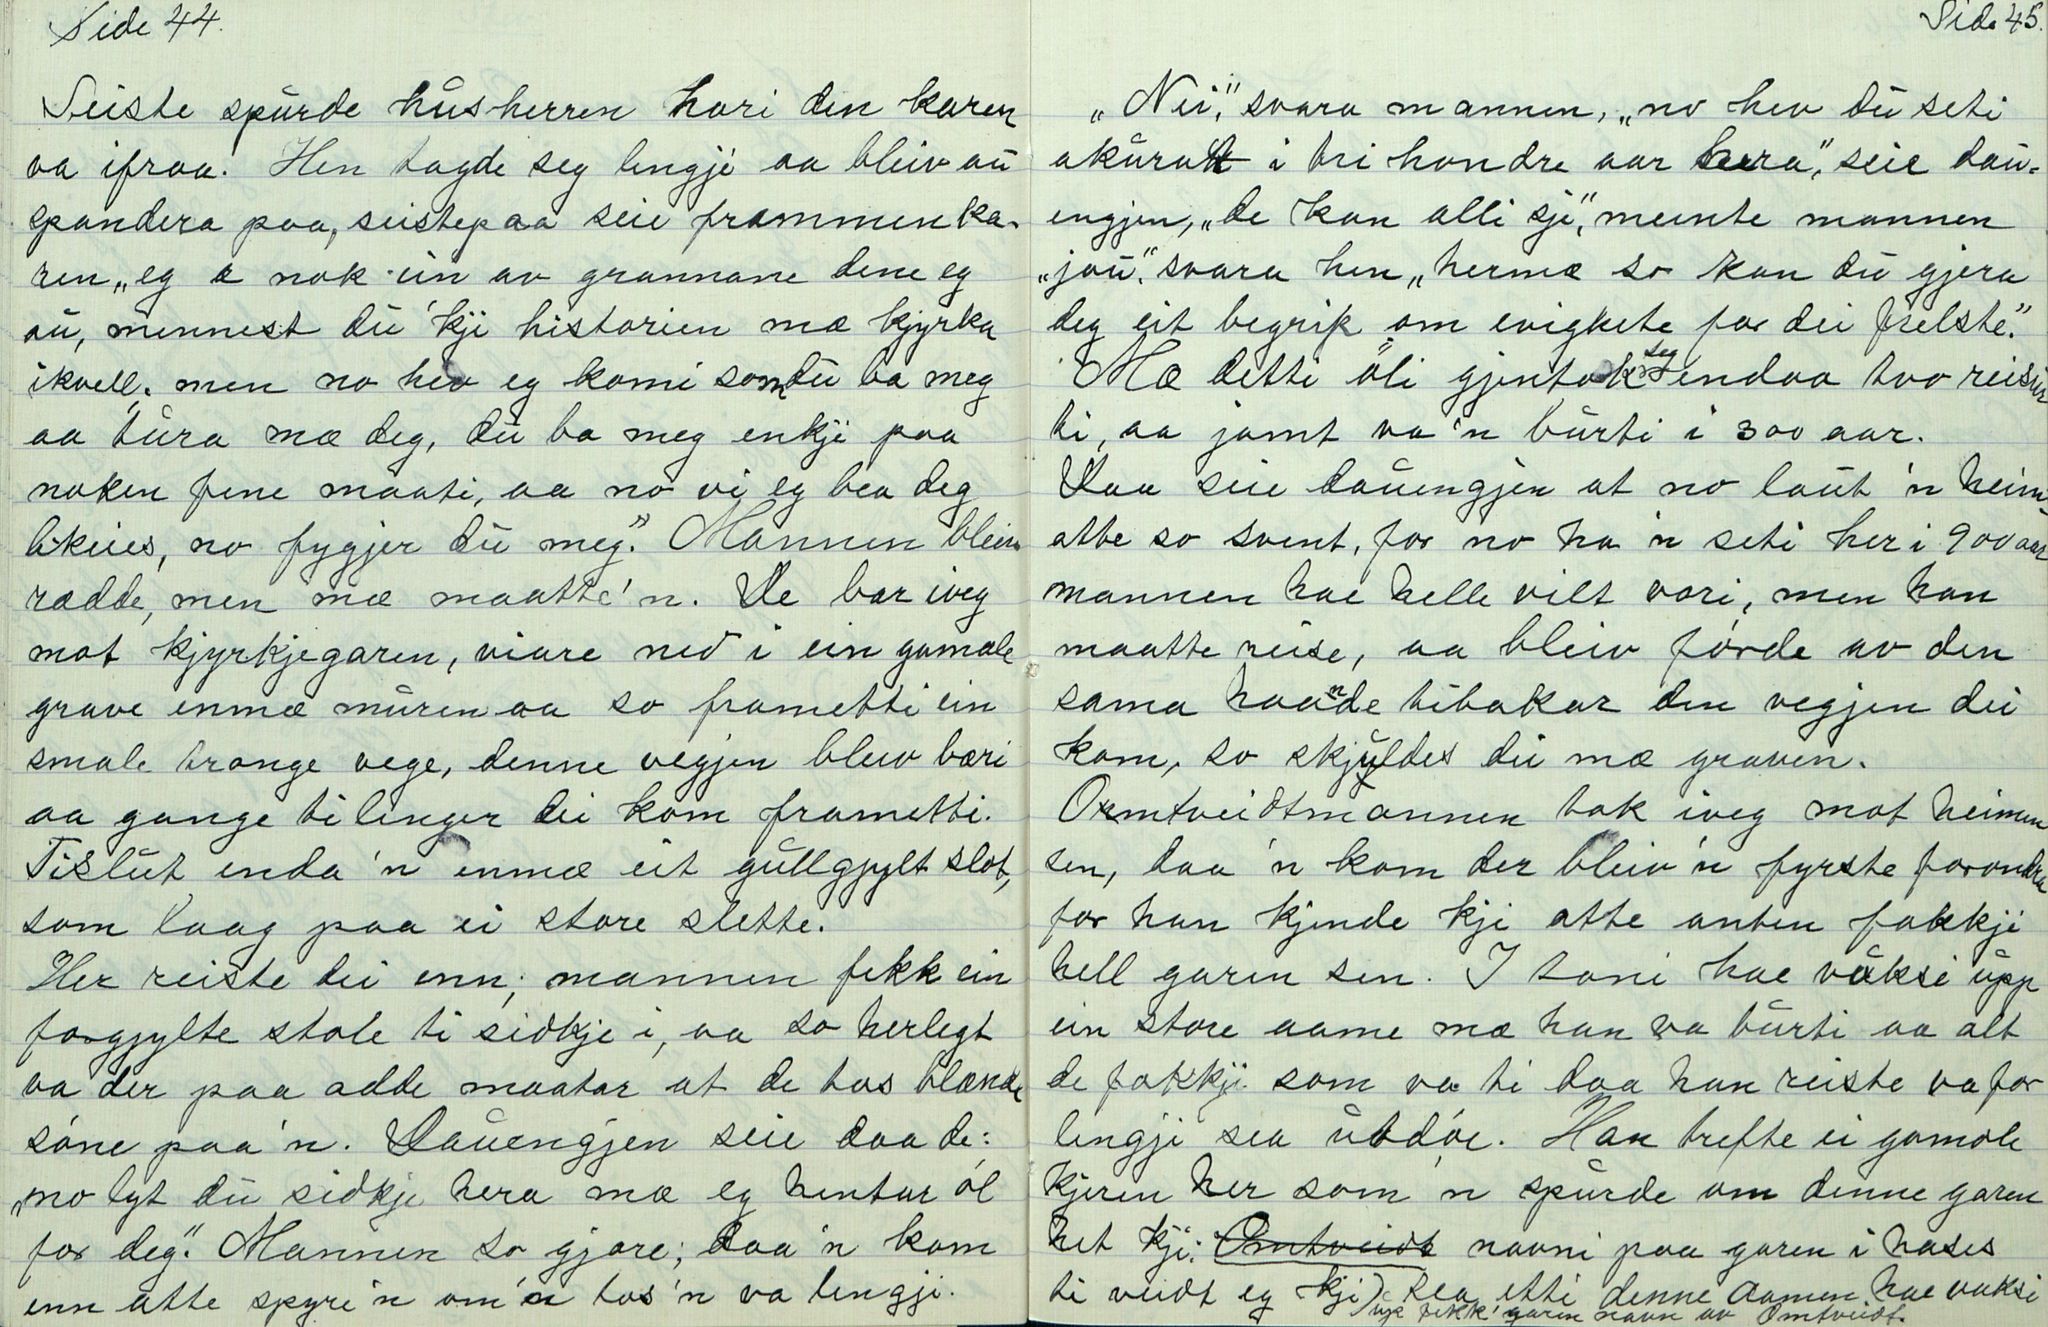 Side 44.
Seiste spurde husherren hori den karen
va ifraa. Hen tagde seg lengje aa bleiv au
spandera paa, seistepaa seie frammenka-
ren „eg æ nok ein av grannane dene eg
au, mennest du 'kji historien mæ kjyrka
ikvell, men no hev eg komi som du ba meg
aa tura mæ deg, du ba meg enkji paa
noken fine maati, aa no vi eg bea deg
likeies, no fygjer du meg." Mannen bleiv
rædde, men mæ maatte 'n. De bar iveg
mot kjyrkjegaren, viare ned i ein gamale
grave enmæ muren aa so frametti ein
smale trange vege, denne vegjen bleiv bæri
aa gange ti lenger dei kom frametti.
Tislut enda 'n enmæ eit gullgjylt slot,
som laag paa ei store slette.
Her reiste dei enn; mannen fekk ein
forgjylte stole ti sidkje i, aa so herlegt
va der paa adde maatar at de tos blænde
sóne paa 'n. Dauengjen seie daa de:
„no lyt du sidkje hera mæ eg hentar ól
for deg." Mannen so gjore; daa 'n kom
enn atte spyre 'n om 'n tos 'n va lengji.
Side 45.
„Nei," svara mannen, „no hev du seti
akurat i tri hondre aar hera," seie dau-
engjen, „de kan alli sje," meinte mannen
„jau." svara hen „hermæ so kan du gjera
deg eit begrip om evigkete for dei frelste."
Mæ detti óli gjentok seg endaa tvo reisur
ti, aa jamt va 'n burti i 300 aar.
Daa seie dauengjen at no laut 'n heim-
atte so svent, for no ha 'n seti her i 900 aar
mannen hae helle vilt vori, men han
maatte reise, aa bleiv fórde av den
sama haande tibakar den vegjen dei
kom, so skjyldes dei mæ graven.
Omtveidtmannen tok iveg mot heimen
sen, daa 'n kom der bleiv 'n fyrste forondra
for han kjende kji atte anten fokkji
hell garen sen. I toni hae voksi upp
ein store aame mæ han va burti aa alt
de fokkji som va ti daa han reiste va for
lengji sea utdóe. Han trefte ei gamale
kjeren her som 'n spurde om denne garen
het kji: Omtveidt navni paa garen i hases
ti veidt eg kji) Sea etti denne aamen hae vaksi
upp fekk garen navn av Omtveidt.